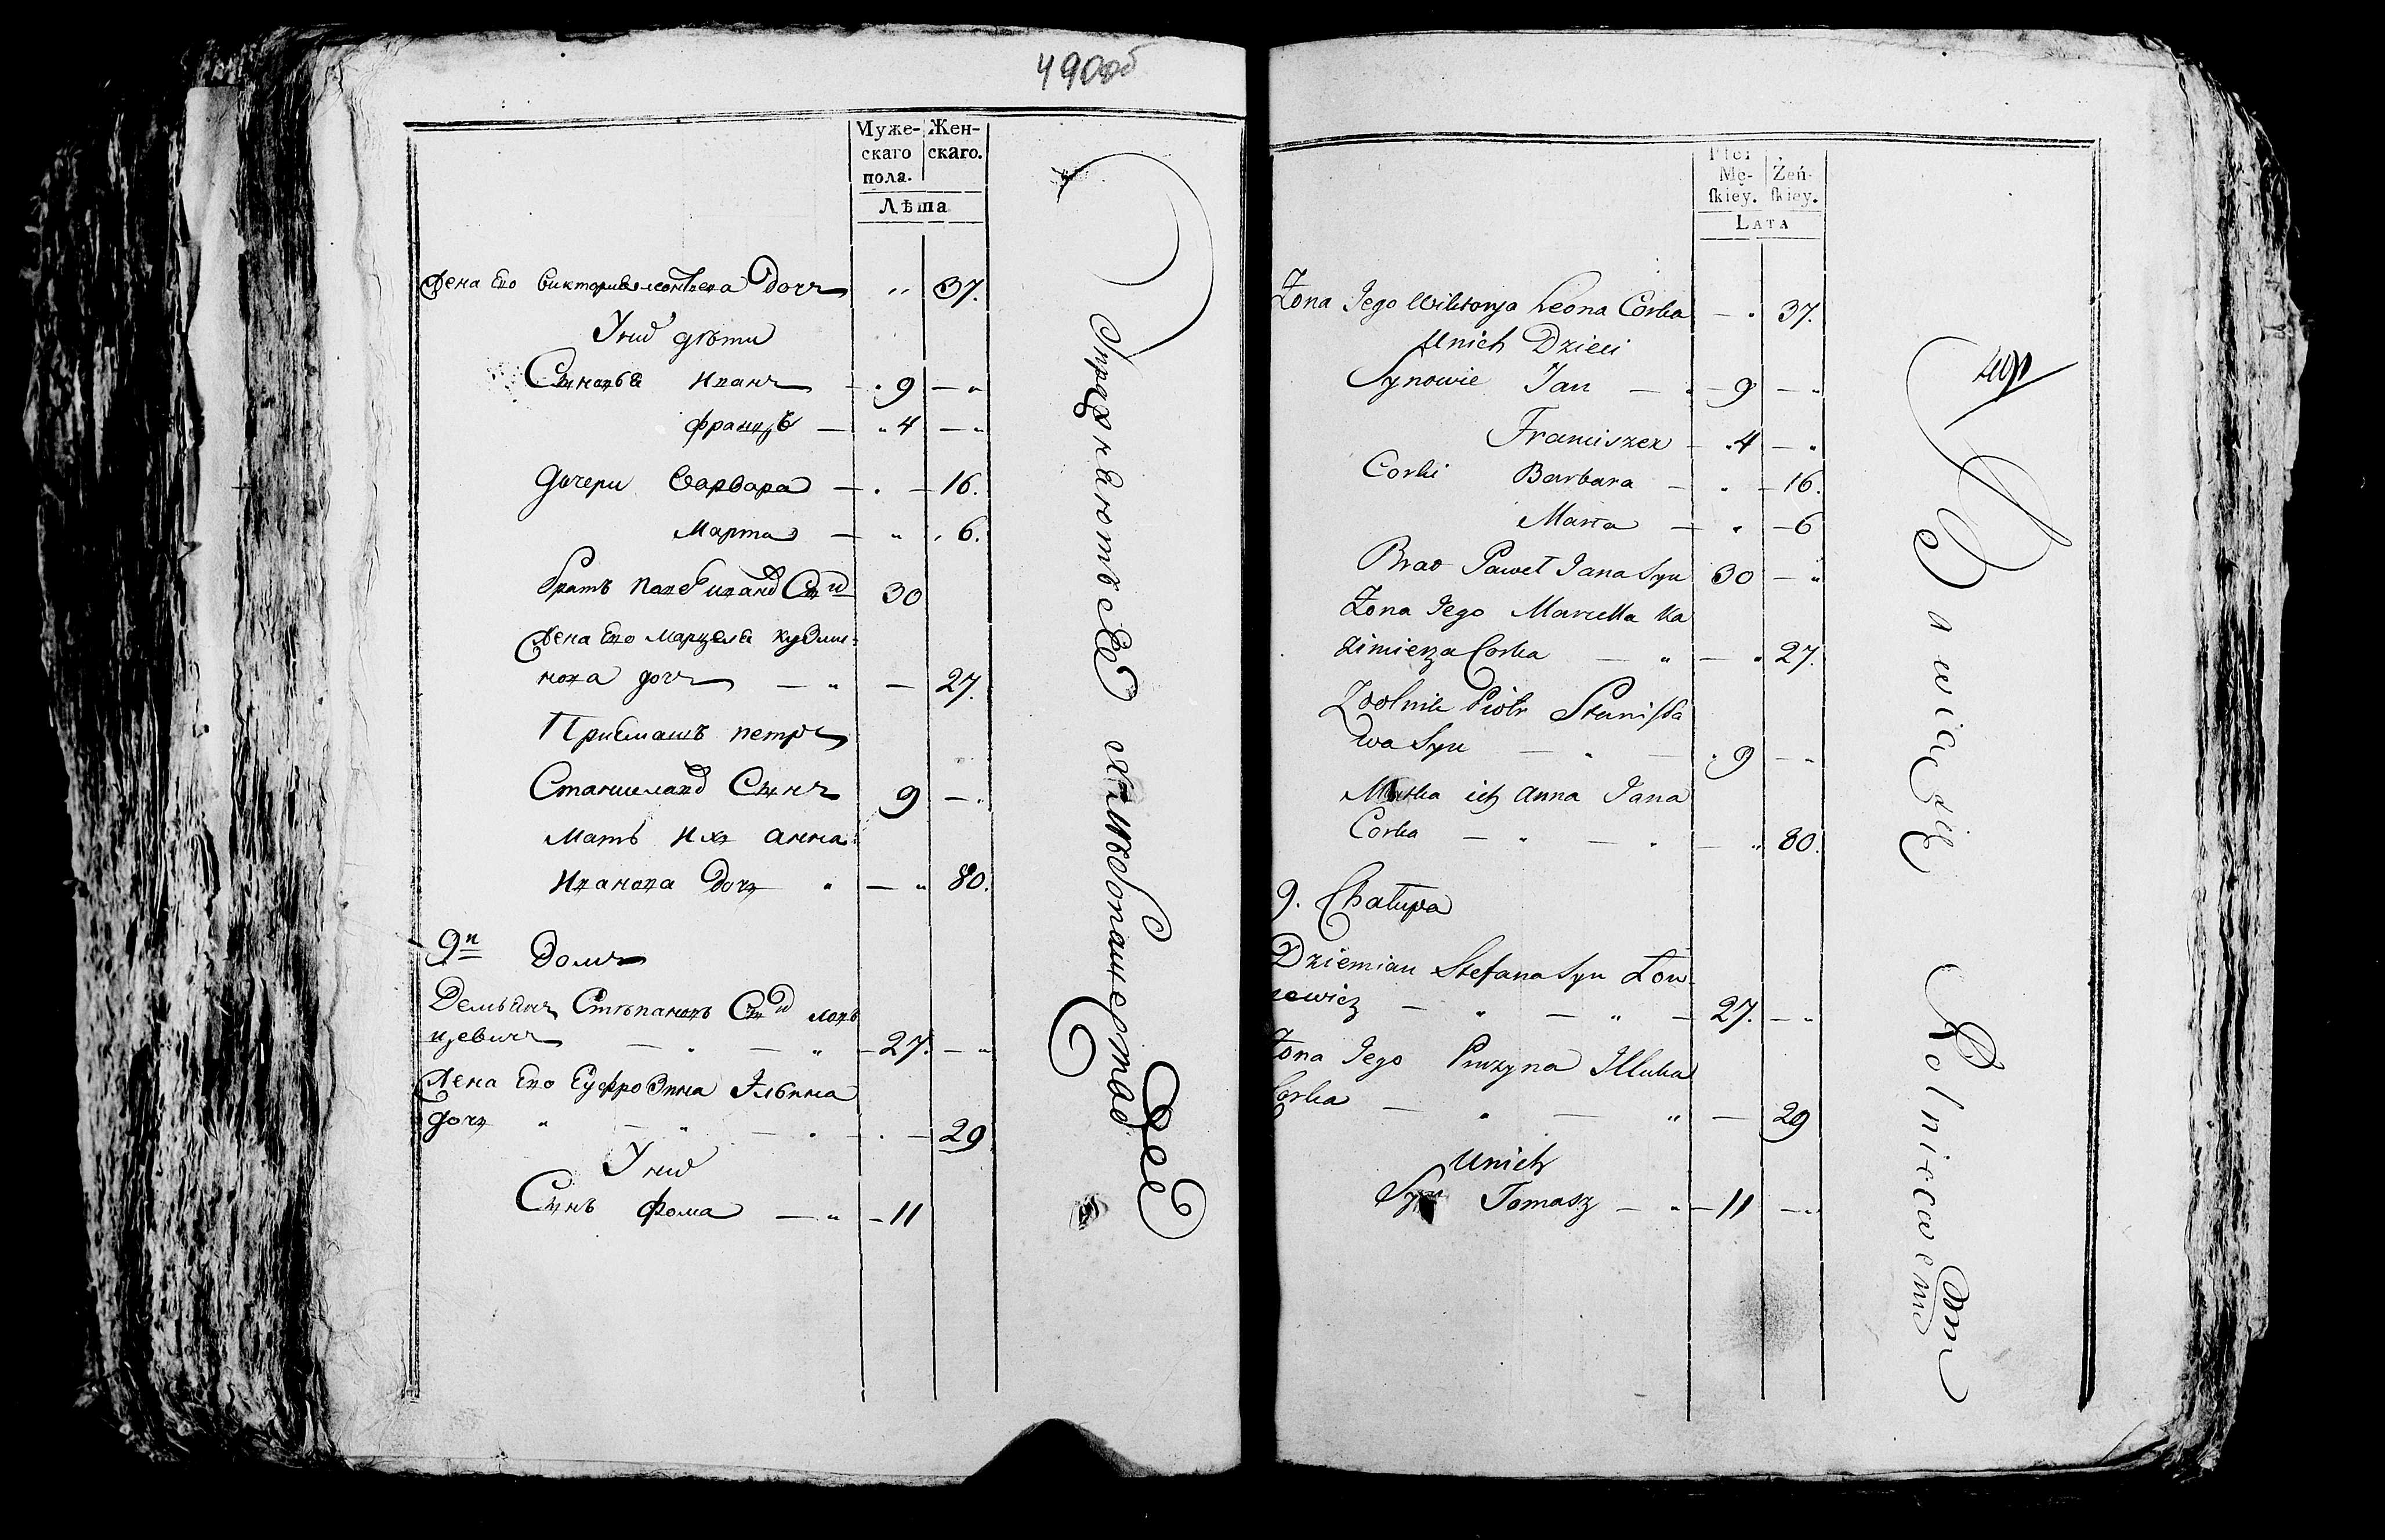 490об
Муже- Жен-
скаго скаго.
пола.
Лѣта
Жена Его Викторія Леонтьева Дочь " 37.
У них дѣти
Сыновья Иванъ — " 9 — "
Францъ — " 4 — "
Дочери Варвара — " — 16.
Марта — " " 6.
братъ Павел Иванов Сын 30
Жена Его Марцеля Кузми-
нова дочь — " — 27.
Приемышъ петръ
Станиславов Сынъ 9 — "
Мать Ихъ Анна
Иванова Дочь " — " 80.
9й Домъ
Демьянъ Стѣпановъ Сын Лов
цевичъ — " — " — 27. — "
Жена Его Еуфрозина Ильина
дочь " — " — " — " — 29
У них
Сынъ Фома — " — 11
Упражняются
в хлебопашестве
Płci
Mę- Żeń-
ſkiey. ſkiey.
LATA
Żona Jego Wiktorya Leona Corka — " 37.
U nich Dzieci
Synowie Jan — — 9 — "
Franciszek — " 4 — "
Corki Barbara — " — 16.
Marta — " — 6
Brat Paweł Jana Syn 30 — "
Żona Jego Marcella Ka
zimierza Corka — " — " 27.
Zwolnik Piotr Stanisła
wa Syn — " — " 9 — "
Matka ich Anna Jana
Corka — " — " — " 80.
9. Chałupa
Dziemian Stefana Syn Łow
cewicz — " — " — 27. — "
Żona Jego Pruzyna Illuka
Corka — " — " — 29
U nich
Syn Tomasz — " — 11 — "
490
Bawią się Rolnictwem